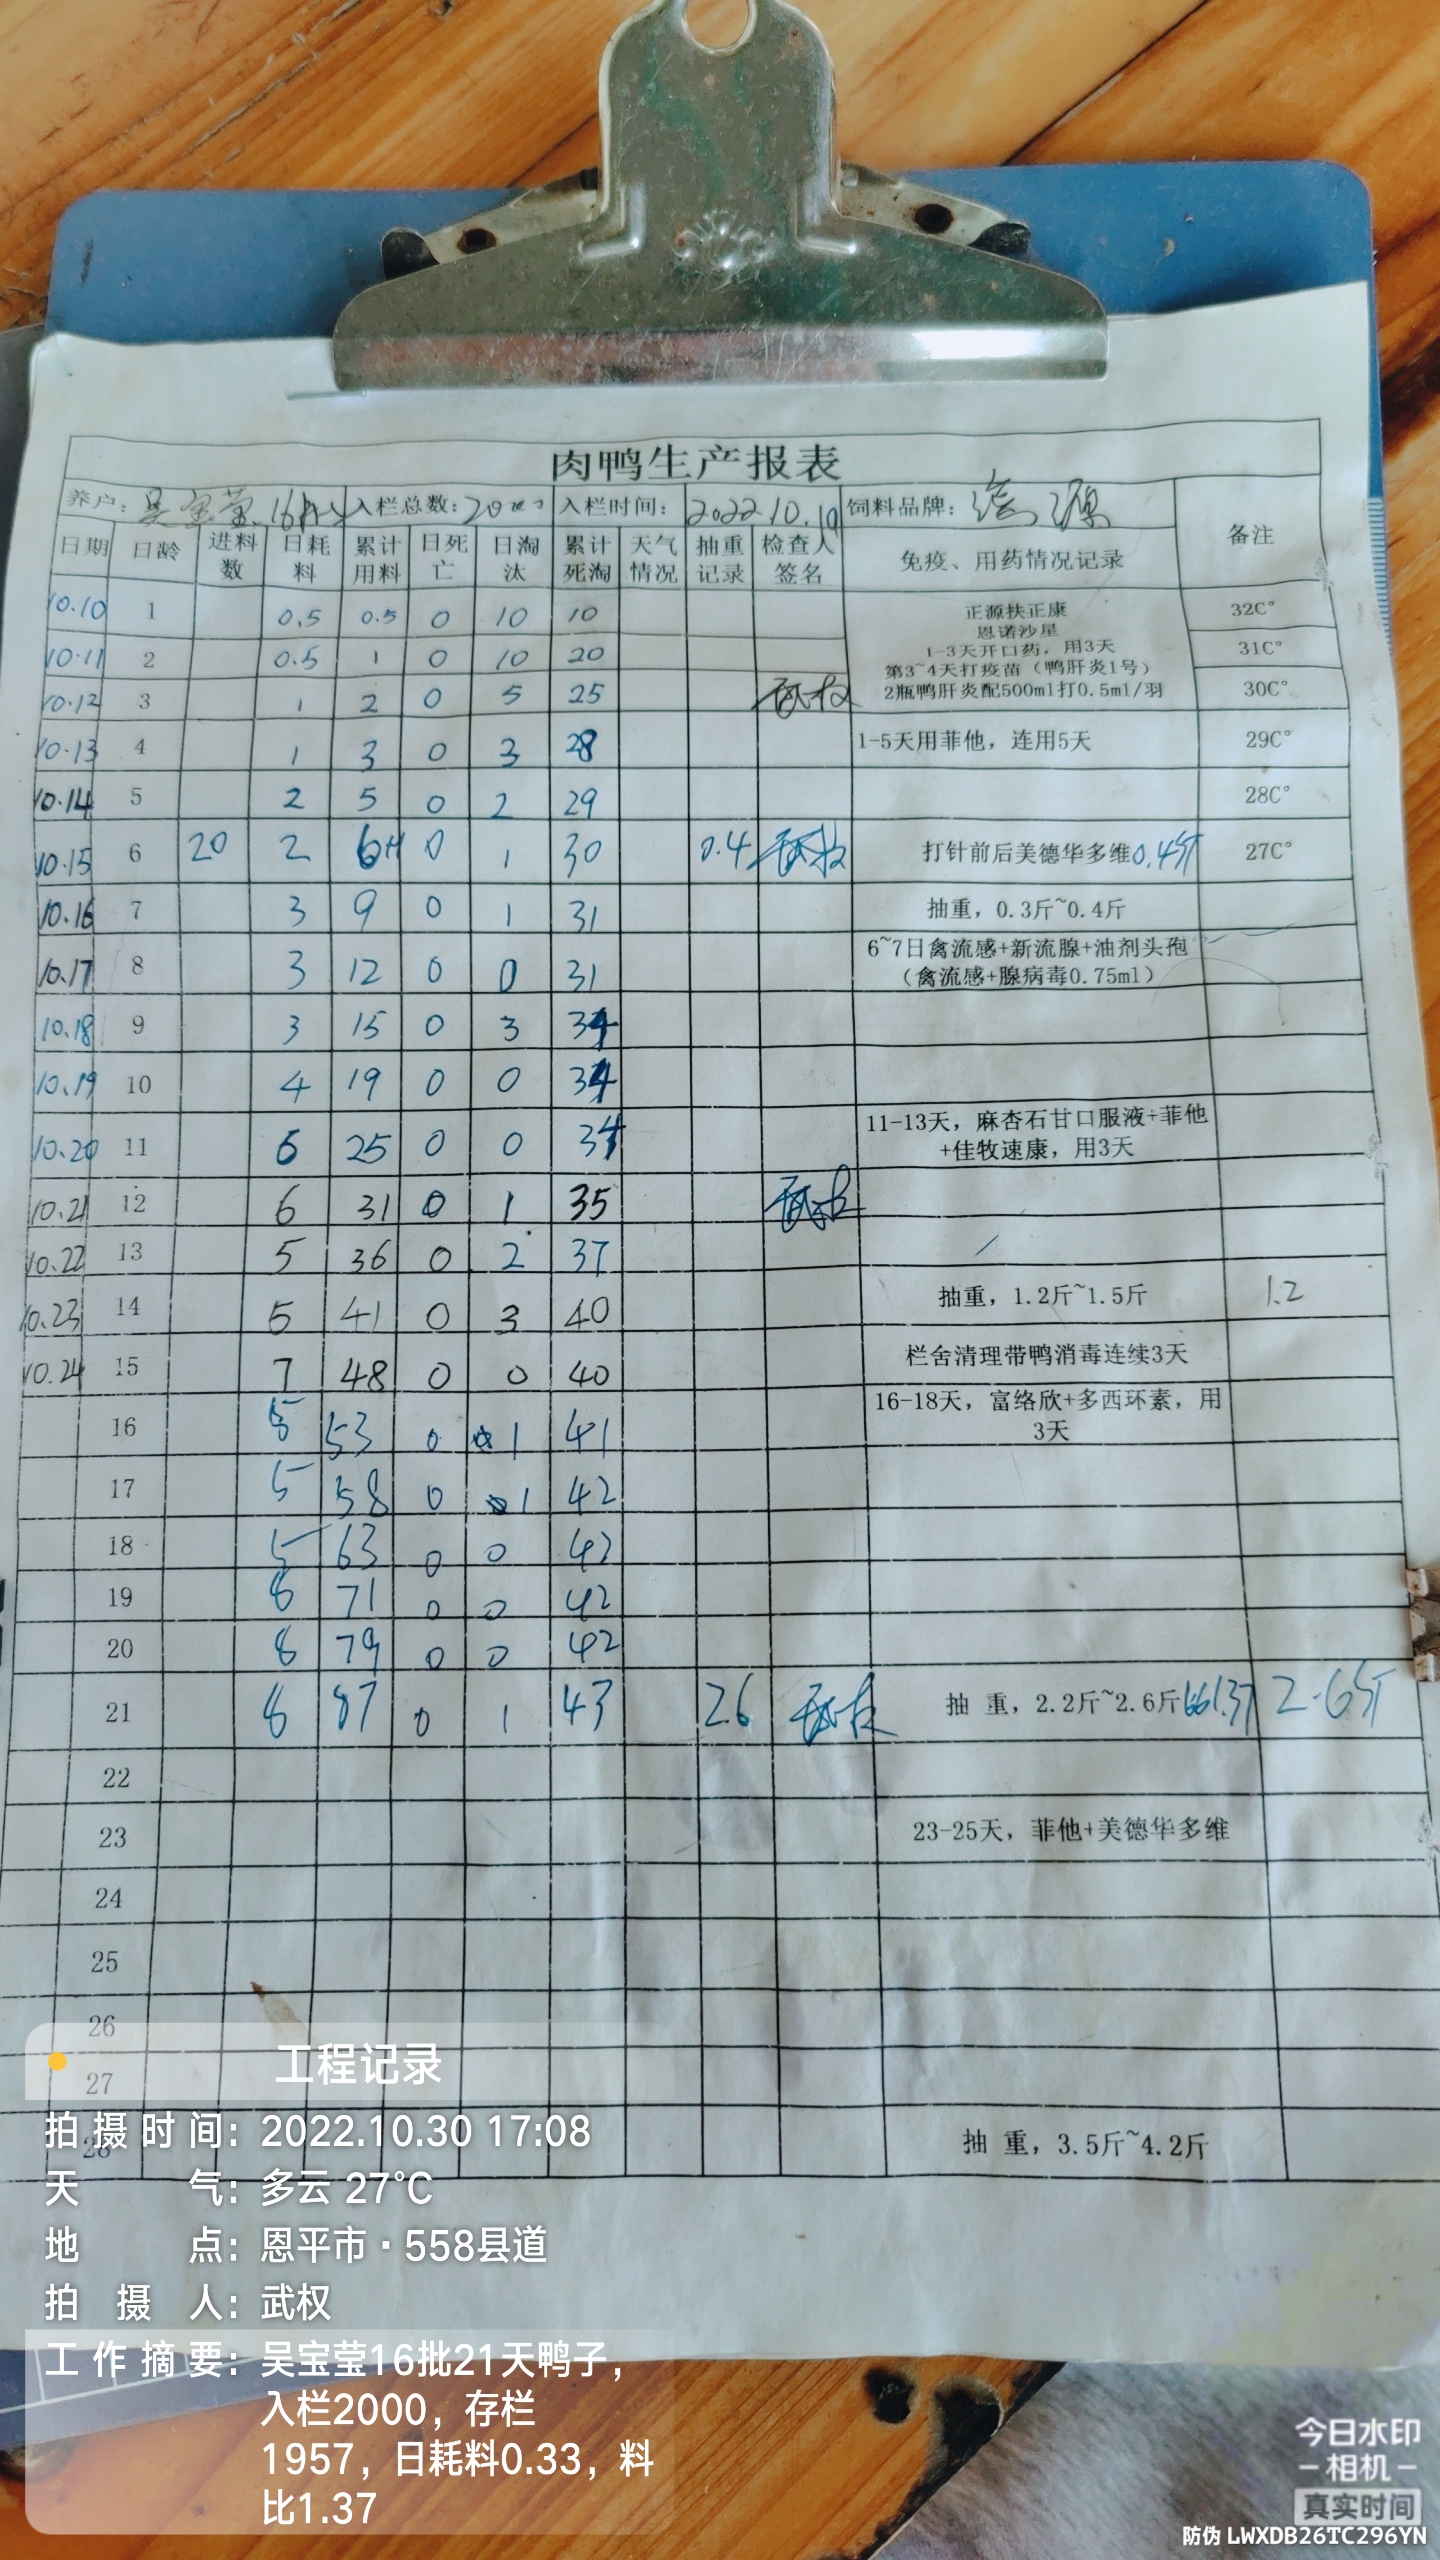 肉鸭生产报表
养户: 吴宝莹.16批 入栏总数: 2000 入栏时间: 2022.10.10 饲料品牌:
日期 日龄 进料数 日耗料 累计用料 日死亡 日淘汰 累计死淘 天气情况 抽重记录 检查人签名 免疫、用药情况记录 备注
10.10 1 0.5 0.5 0 10 10 正源扶正康 32C°
恩诺沙星
10.11 2 0.5 1 0 10 20 1-3天开口药，用3天 31C°
第3~4天打疫苗（鸭肝炎1号）
10.12 3 1 2 0 5 25 武权 2瓶鸭肝炎配500ml打0.5ml/羽 30C°
10.13 4 1 3 0 3 28 1-5天用菲他，连用5天 29C°
10.14 5 2 5 0 2 29 28C°
10.15 6 20 2 6 0 1 30 0.4 武权 打针前后美德华多维0.4斤 27C°
10.16 7 3 9 0 1 31 抽重，0.3斤~0.4斤
10.17 8 3 12 0 0 31 6~7日禽流感+新流腺+油剂头孢
（禽流感+腺病毒0.75ml）
10.18 9 3 15 0 3 34
10.19 10 4 19 0 0 34
10.20 11 6 25 0 0 34 11-13天，麻杏石甘口服液+菲他
+佳牧速康，用3天
10.21 12 6 31 0 1 35 武权
10.22 13 5 36 0 2 37
10.23 14 5 41 0 3 40 抽重，1.2斤~1.5斤 1.2
10.24 15 7 48 0 0 40 栏舍清理带鸭消毒连续3天
16 5 53 0 1 41 16-18天，富络欣+多西环素，用
3天
17 5 58 0 1 42
18 5 63 0 0 42
19 8 71 0 0 42
20 8 79 0 0 42
21 8 87 0 1 43 2.6 武权 抽 重，2.2斤~2.6斤 2.6斤
22
23 23-25天，菲他+美德华多维
24
25
26
27
28 抽 重，3.5斤~4.2斤
工程记录
拍摄时间：2022.10.30 17:08
天气：多云 27℃
地点：恩平市·558县道
拍摄人：武权
工作摘要：吴宝莹16批21天鸭子，
入栏2000，存栏
1957，日耗料0.33，料
比1.37
今日水印
相机
真实时间
防伪 LWXDB26TC296YN